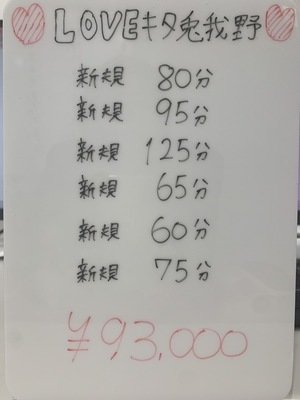 LOVEキタ兎我野
新規 80分
新規 95分
新規 125分
新規 65分
新規 60分
新規 75分
¥93,000